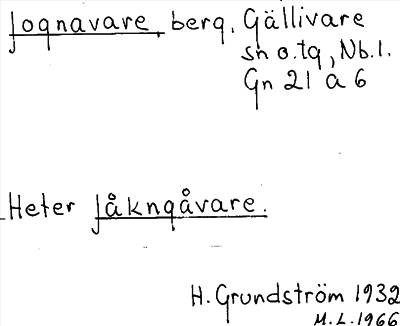 Jognavare, berg, Gällivare
sn o.tg, Nb.l.
Gn 21 a 6
Heter Jåkngåvare.
H. Grundström 1932
M.L. 1966